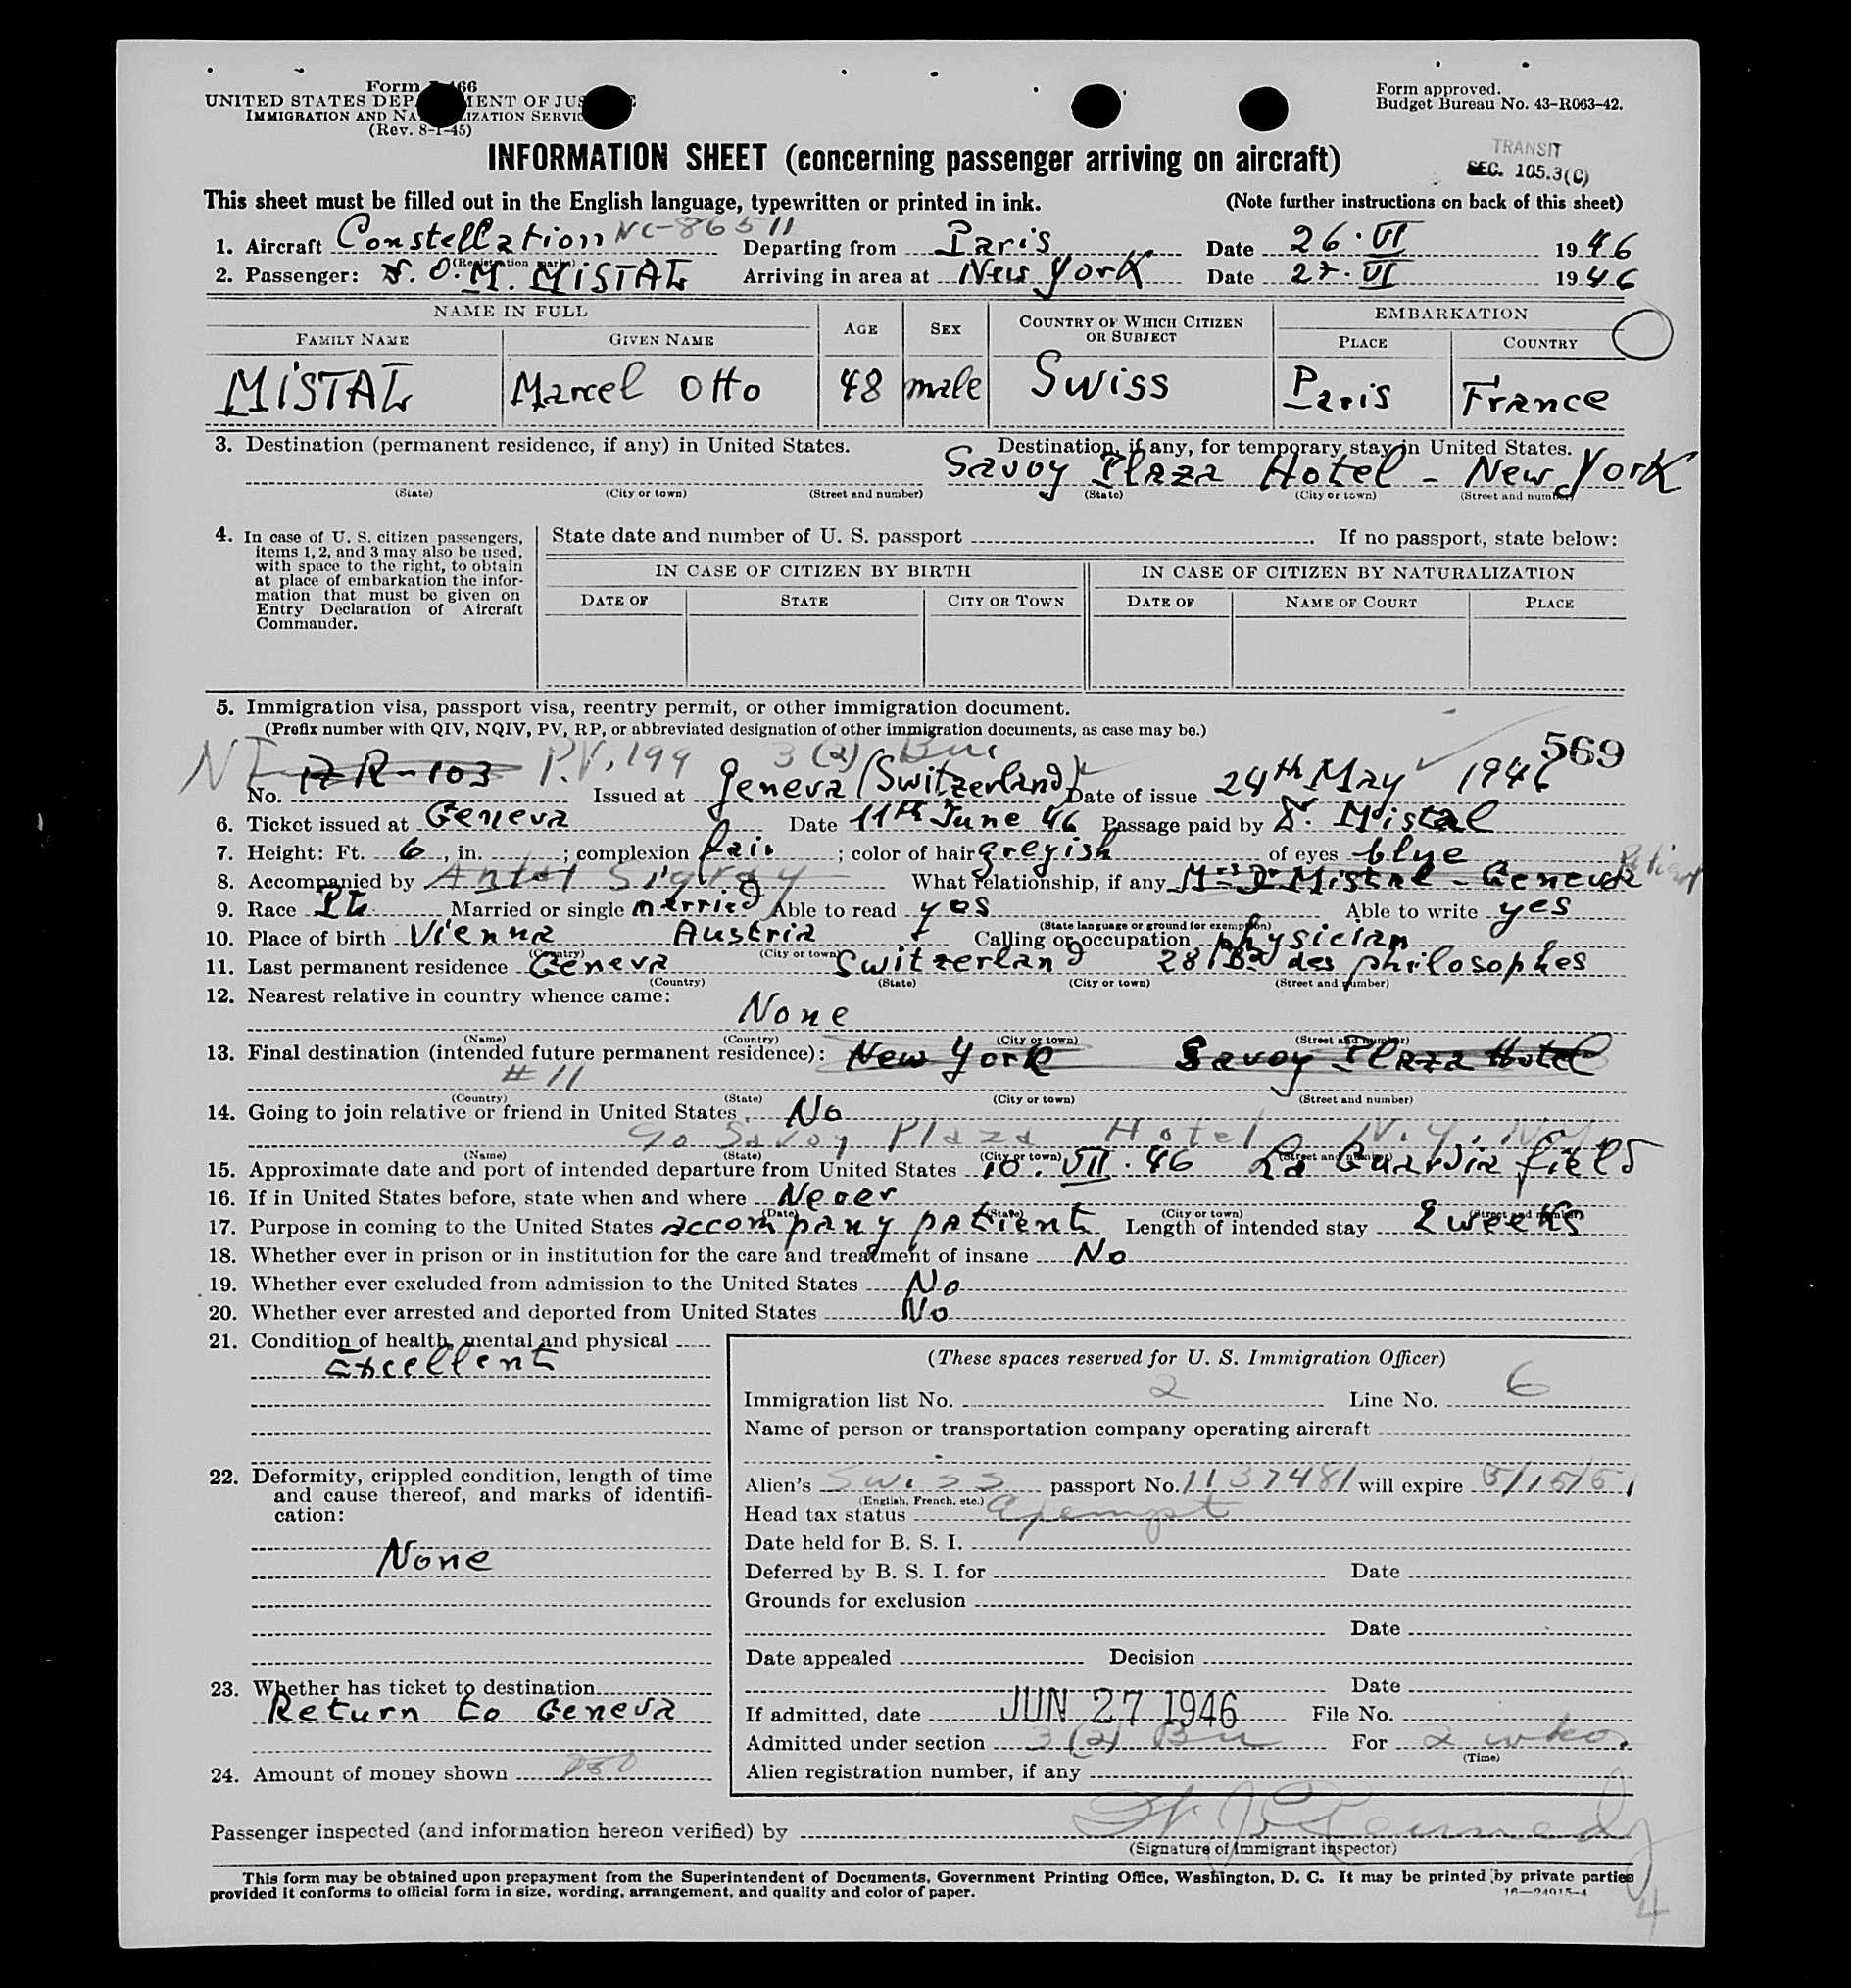 Form I-466
UNITED STATES DEPARTMENT OF JUSTICE
IMMIGRATION AND NATURALIZATION SERVICE
(Rev. 8-1-45)
Form approved.
Budget Bureau No. 43-R063-42.
INFORMATION SHEET (concerning passenger arriving on aircraft)
TRANSIT
SEC. 105.3(C)
This sheet must be filled out in the English language, typewritten or printed in ink. (Note further instructions on back of this sheet)
1. Aircraft Constellation NC-86511 Departing from Paris Date 26.VI 1946
(Registration marks)
2. Passenger: O. M. MISTAL Arriving in area at New York Date 27.VI 1946
NAME IN FULL AGE SEX COUNTRY OF WHICH CITIZEN OR SUBJECT EMBARKATION
FAMILY NAME GIVEN NAME PLACE COUNTRY
MISTAL Marcel Otto 48 male Swiss Paris France
3. Destination (permanent residence, if any) in United States. Destination, if any, for temporary stay in United States.
Savoy Plaza Hotel - New York
(State) (City or town) (Street and number) (State) (City or town) (Street and number)
4. In case of U. S. citizen passengers, items 1, 2, and 3 may also be used, with space to the right, to obtain at place of embarkation the information that must be given on Entry Declaration of Aircraft Commander.
State date and number of U. S. passport If no passport, state below:
IN CASE OF CITIZEN BY BIRTH IN CASE OF CITIZEN BY NATURALIZATION
DATE OF STATE CITY OR TOWN DATE OF NAME OF COURT PLACE
5. Immigration visa, passport visa, reentry permit, or other immigration document.
(Prefix number with QIV, NQIV, PV, RP, or abbreviated designation of other immigration documents, as case may be.)
569
No. R-103 P.V. 199 3(2) Bus Issued at Geneva (Switzerland) Date of issue 24th May 1946
6. Ticket issued at Geneva Date 11th June 46 Passage paid by Dr. Mistal
7. Height: Ft. 6, in. ; complexion fair ; color of hair greyish of eyes blye
8. Accompanied by What relationship, if any Mistal - Geneva Patient
9. Race Married or single married Able to read yes Able to write yes
(State language or ground for exemption)
10. Place of birth Vienna Austria Calling or occupation physician
(Country) (City or town)
11. Last permanent residence Geneva Switzerland 28 Bd des philosophes
(Country) (State) (City or town) (Street and number)
12. Nearest relative in country whence came:
None
(Name) (Country) (City or town) (Street and number)
13. Final destination (intended future permanent residence): New York Savoy Plaza Hotel
# 11
(Country) (State) (City or town) (Street and number)
14. Going to join relative or friend in United States No
Savoy Plaza Hotel N.Y. N.Y.
(Name) (State) (City or town) (Street and number)
15. Approximate date and port of intended departure from United States 10.VII.46 La Guardia field
16. If in United States before, state when and where Never
(Date) (State) (City or town) (Street and number)
17. Purpose in coming to the United States accompany patient Length of intended stay 2 weeks
18. Whether ever in prison or in institution for the care and treatment of insane No
19. Whether ever excluded from admission to the United States No
20. Whether ever arrested and deported from United States No
21. Condition of health, mental and physical
Excellent
22. Deformity, crippled condition, length of time and cause thereof, and marks of identification:
None
23. Whether has ticket to destination
Return to Geneva
24. Amount of money shown
(These spaces reserved for U. S. Immigration Officer)
Immigration list No. 2 Line No. 6
Name of person or transportation company operating aircraft
Alien's Swiss passport No. 1137481 will expire 5/15/51
(English, French, etc.)
Head tax status exempt
Date held for B. S. I.
Deferred by B. S. I. for Date
Grounds for exclusion
Date
Date appealed Decision
Date
If admitted, date JUN 27 1946 File No.
Admitted under section 3(2) Bu For 2 wks.
(Time)
Alien registration number, if any
Passenger inspected (and information hereon verified) by Kennedy
(Signature of immigrant inspector)
This form may be obtained upon prepayment from the Superintendent of Documents, Government Printing Office, Washington, D. C. It may be printed by private parties
provided it conforms to official form in size, wording, arrangement, and quality and color of paper.
16—24915-4
4